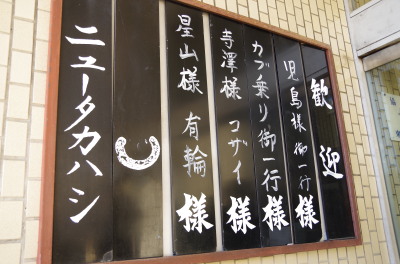 歓迎
児島様御一行様
カブ乗り御一行様
寺澤様 コザイ様
星山様 有輪様
ニュータカハシ